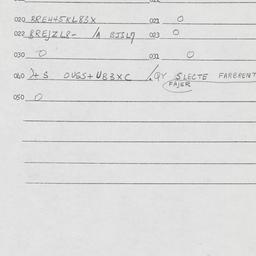 020 RREH45KL83X 021 0
022 RREJZLP- /A BJ3L9 023 0
030 0 031 0
040 OUGS+UB3XC SLECTE FARBRENT
FAJER
050 0